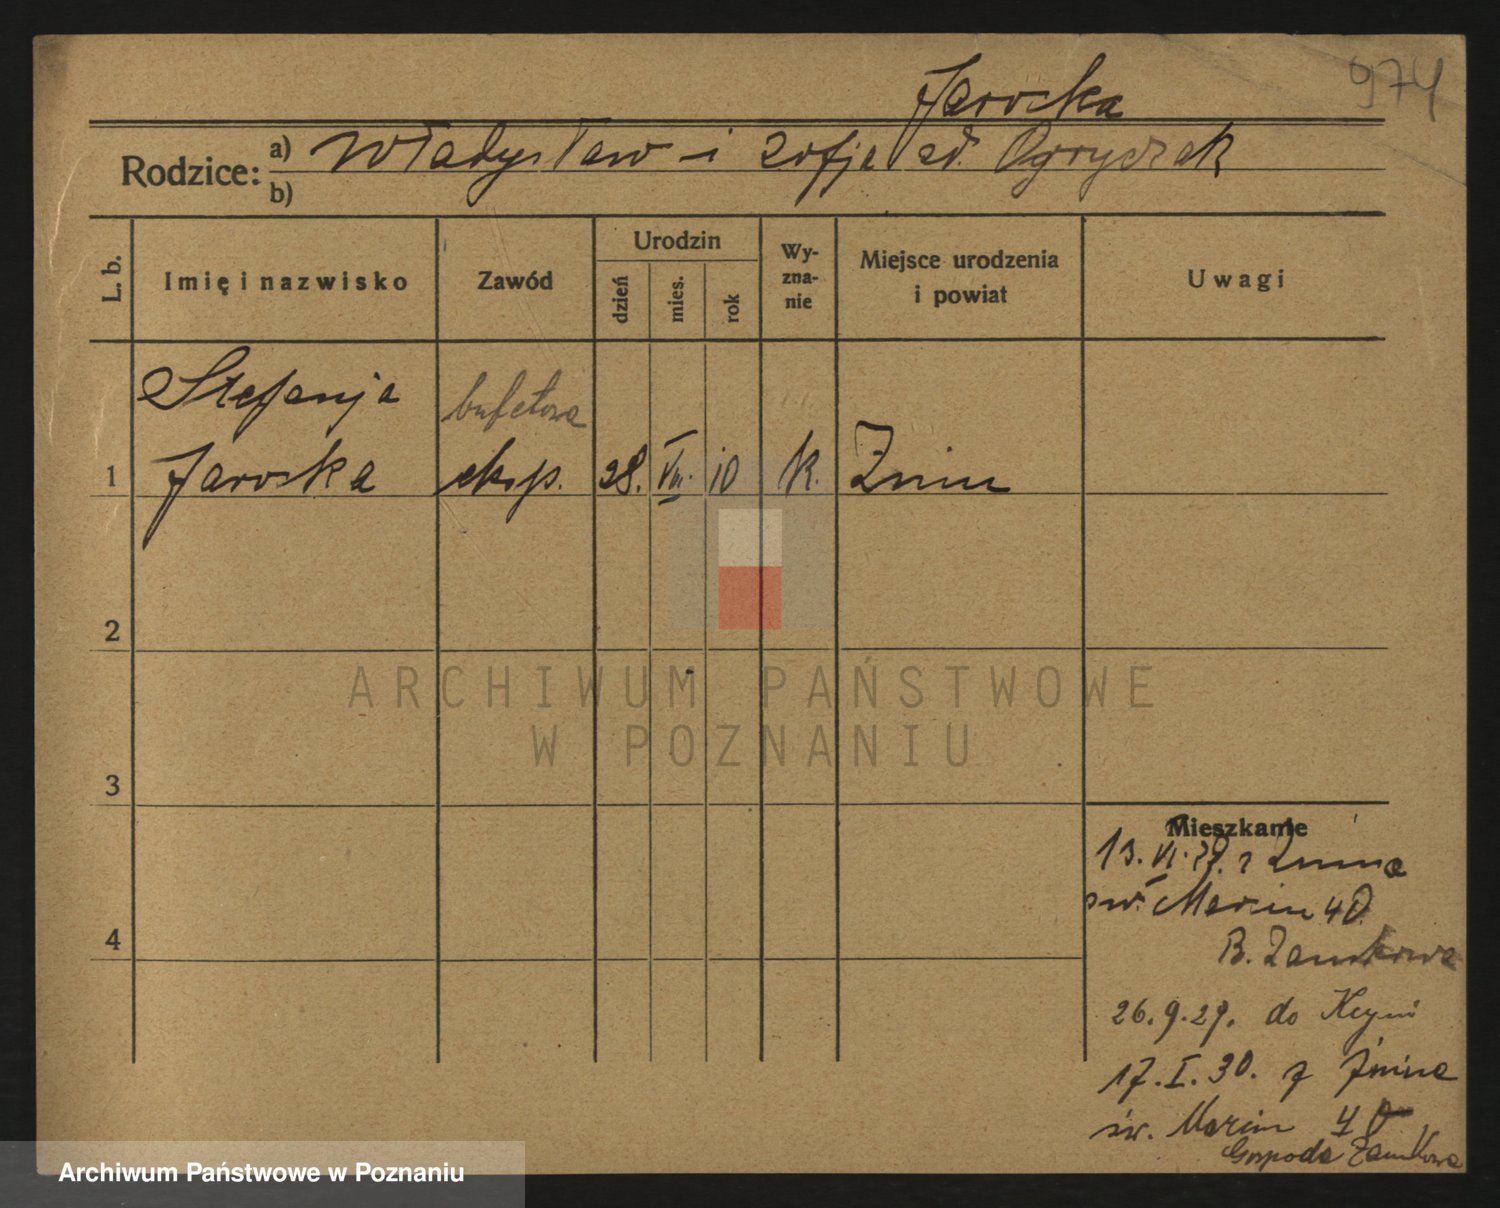 Jarocka
974
Rodzice: a) Władysław i Zofja zd. Ogryczak
b)
L. b.
Imię i nazwisko
Zawód
Urodzin
dzień
mies.
rok
Wy-
zna-
nie
Miejsce urodzenia
i powiat
Uwagi
Stefanja bufetowa
1 Jarocka eksp. 28. VIII. 10 K. Żnin
2
ARCHIWUM PAŃSTWOWE
W POZNANIU
3
Mieszkanie
13. VI. 29. z Żnina
św. Marcin 40.
B. Zamkowa
4
26.9.29. do Kcyni
17.I.30. z Żnina
św. Marcin 40
Gospoda Zamkowa
Archiwum Państwowe w Poznaniu